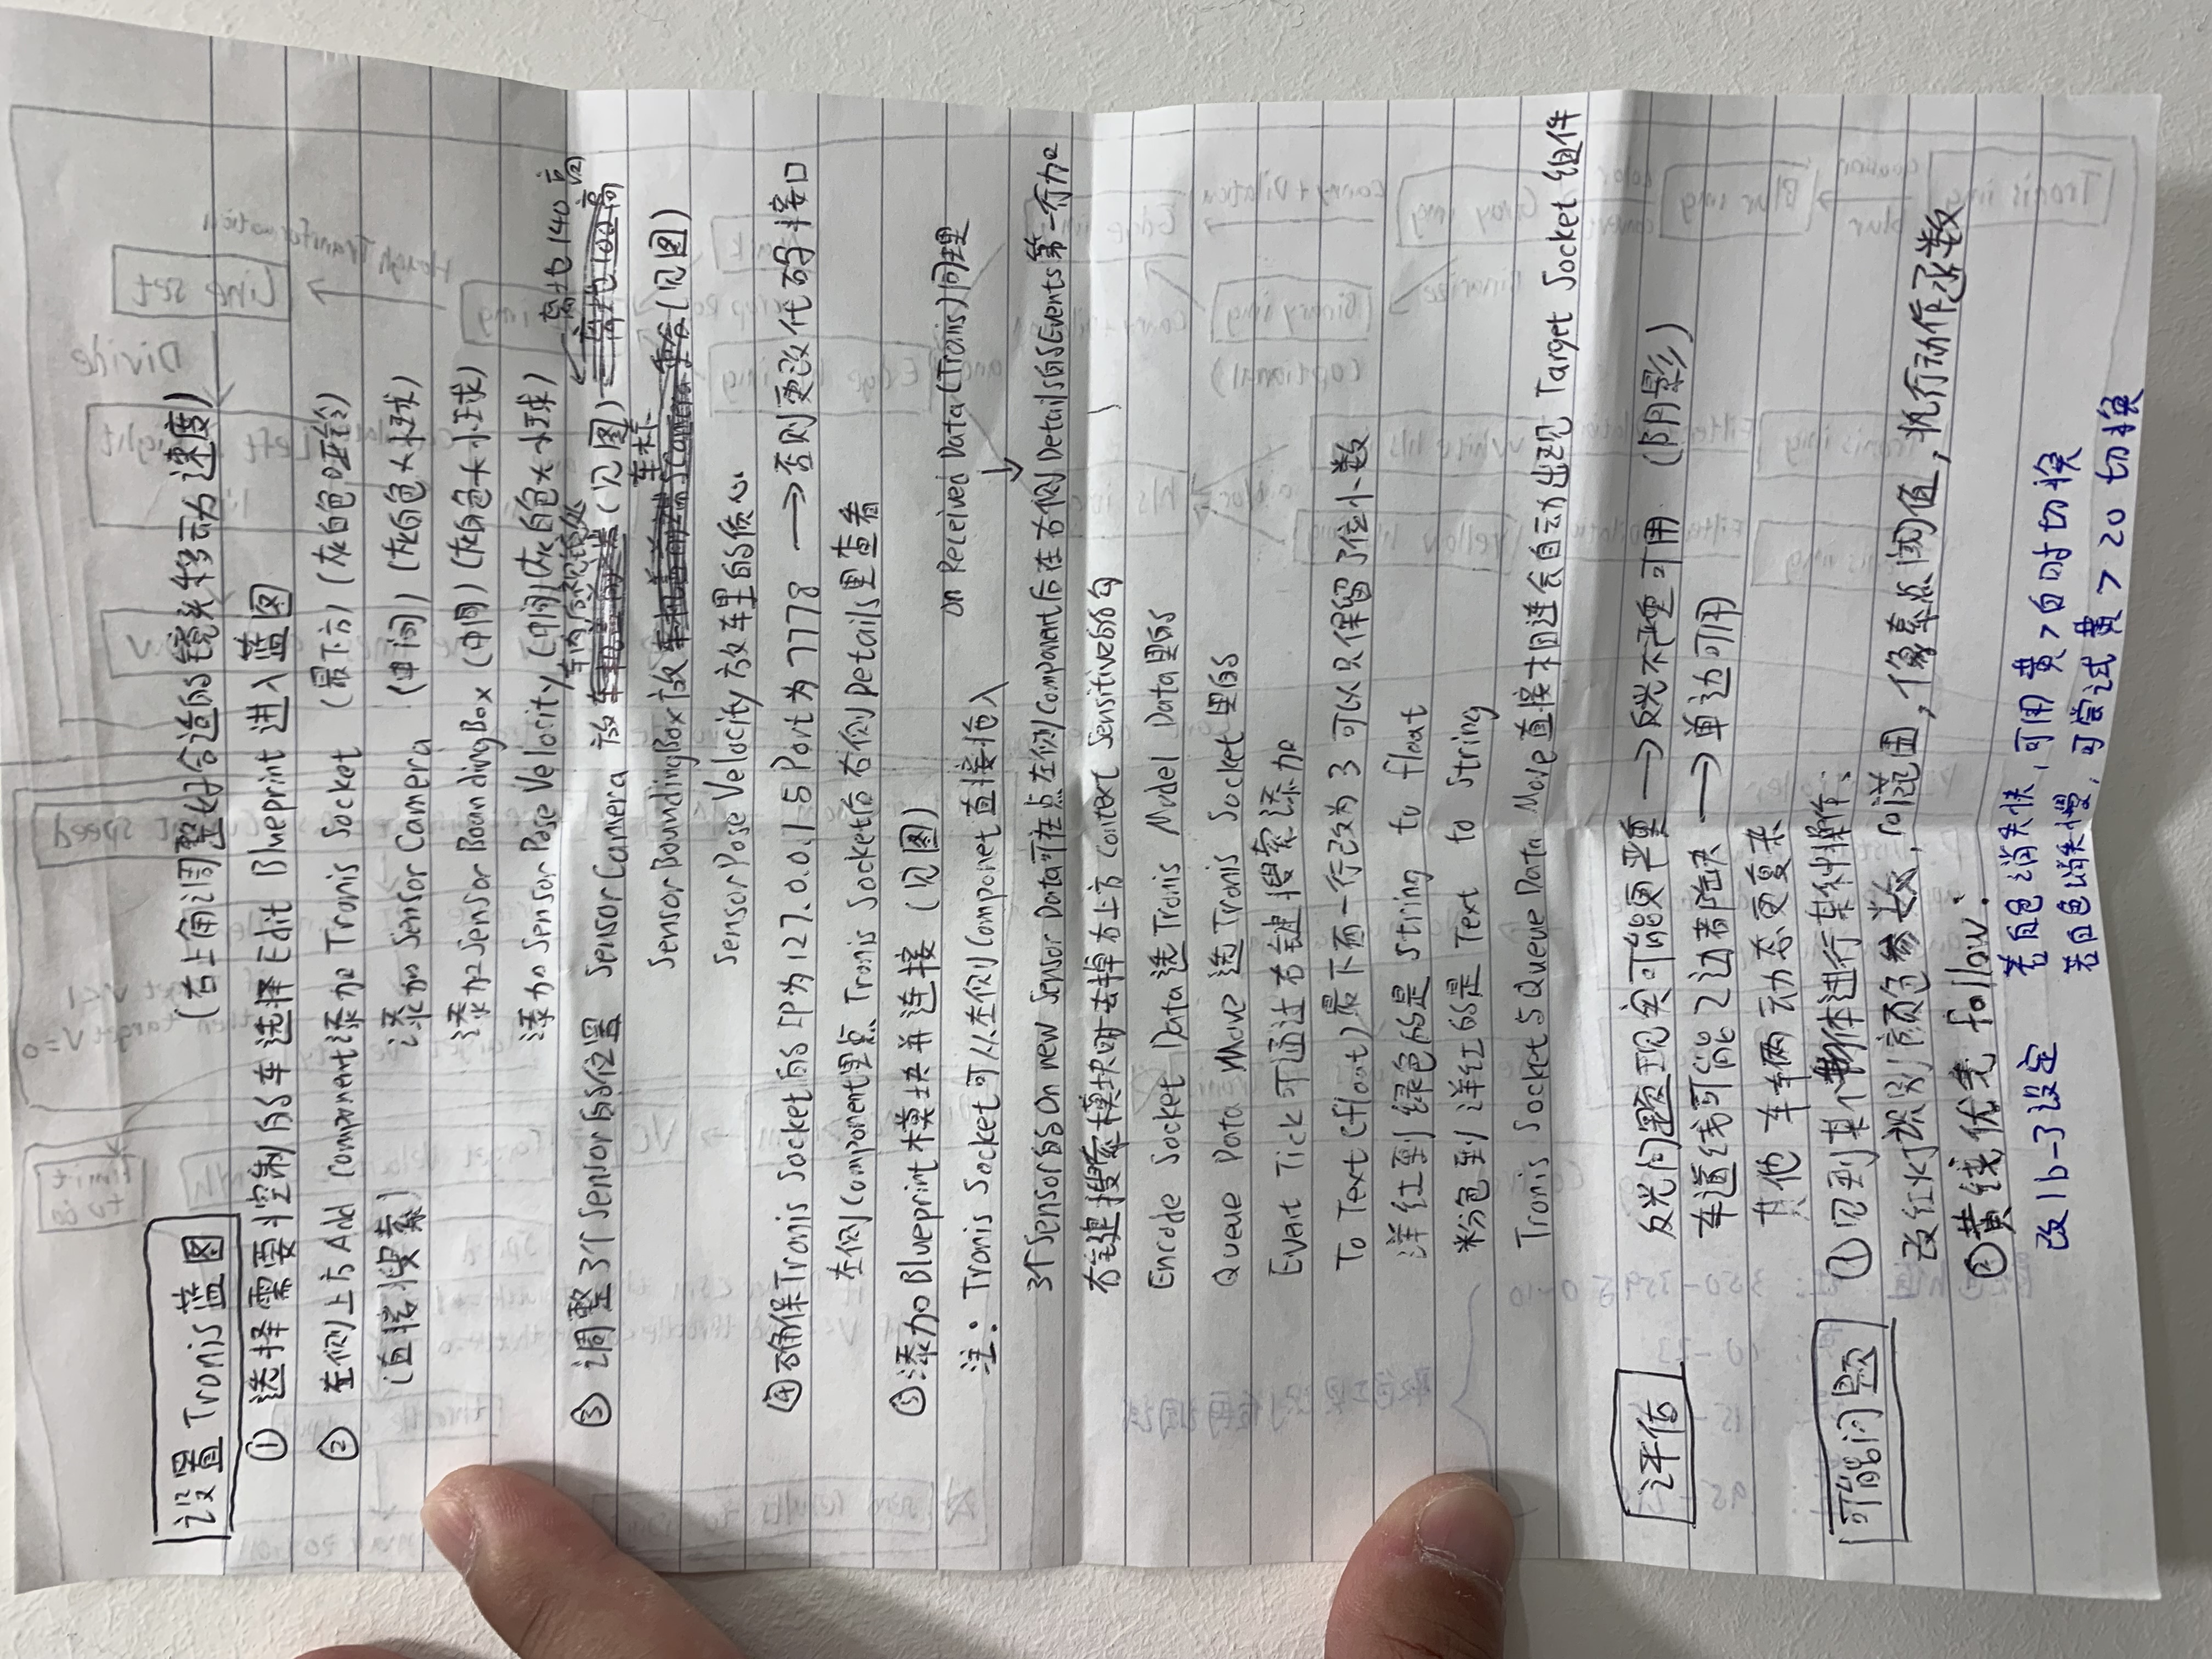 设置Tronis蓝图 (右上角调整好合适的镜头移动速度)
① 选择需要控制的车选择Edit Blueprint进入蓝图
② 左侧上方Add Component添加 Tronis Socket (最下方) (灰白色哑铃)
(直接搜索) 添加 Sensor Camera (中间) (灰白色大小球)
添加Sensor BoundingBox (中间) (灰白色大小球)
添加 Sensor Pose Velocity (中间) (灰白色大小球)
车内后视镜处 离地140高
③ 调整3个Sensor的位置 Sensor Camera 放 (见图) 离地100高
车标
Sensor BoundingBox放 车机盖前端与Camera重合 (见图)
Sensor Pose Velocity 放车里的质心
④ 确保Tronis Socket的IP为127.0.0.1与Port为7778 → 否则更改代码接口
左侧Component里点 Tronis Socket后右侧Details里查看
⑤ 添加Blueprint模块并连接 (见图)
On Received Data (Tronis) 同理
注: Tronis Socket可从左侧Componet直接拖入
3个Sensor的On new Sensor Data可在点左侧Component后在右侧Details的Events第一行加
右键搜索模块时去掉右上方Context Sensitive的勾
Encode Socket Data选Tronis Model Data里的
Queue Data Move 选Tronis Socket里的
Event Tick可通过右键搜索添加
To Text (float) 最下面一行改为3 可以只保留3位小数
洋红到绿色的是 String to float
粉色到洋红的是 Text to String
Tronis Socket与Queue Data Move直接相连会自动出现 Target Socket 组件
评估 反光问题现实可能更严重 → 反光不严重可用 (阴影)
车道线可能2边都缺 → 单边可用
其他车辆动态更复杂
可能问题 ① 见到某个物体进行某种操作:
改红灯识别颜色参数, roi范围, 像素点阈值, 执行动作函数
② 黄线优先 follow:
改1b-3设定 若白色消失快, 可用黄>白时切换
若白色消失慢, 可尝试黄 > 20 切换